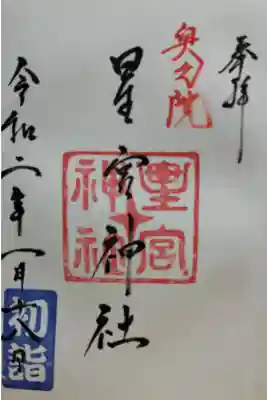 奉拝
奥之院
星宮神社
星宮
神社
令和二年一月六日
初詣